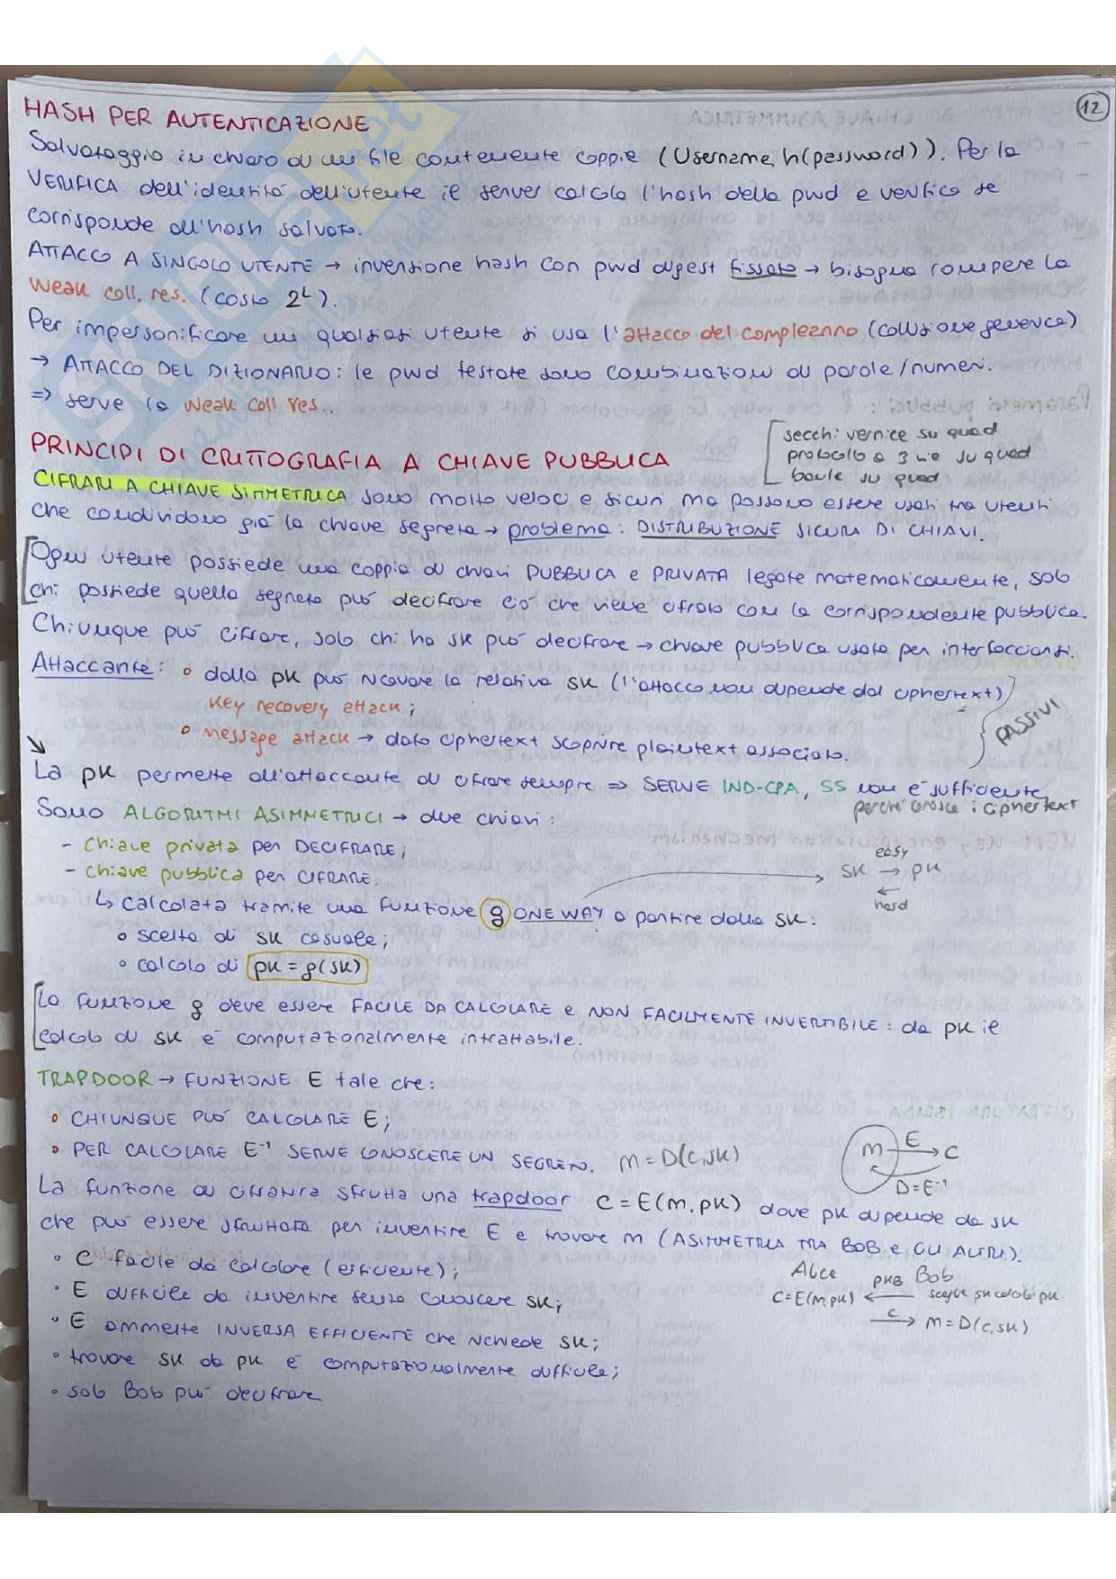 12
HASH PER AUTENTICAZIONE
Salvataggio in chiaro di un file contenente coppie (Username, h(password)). Per la
VERIFICA dell'identità dell'utente il server calcola l'hash della pwd e verifica se
corrisponde all'hash salvato.
ATTACCO A SINGOLO UTENTE → inversione hash con pwd digest fissato → bisogna rompere la
weak coll. res. (costo 2^L).
Per impersonificare un qualsiasi utente si usa l'attacco del compleanno (collisione generica)
→ ATTACCO DEL DIZIONARIO: le pwd testate sono combinazioni di parole/numeri.
=> serve la weak coll res..
PRINCIPI DI CRITTOGRAFIA A CHIAVE PUBBLICA
secchi vernice su quad
protocollo a 3 vie su quad
baule su quad
CIFRARI A CHIAVE SIMMETRICA sono molto veloci e sicuri ma possono essere usati tra utenti
che condividono già la chiave segreta → problema: DISTRIBUZIONE SICURA DI CHIAVI.
Ogni utente possiede una coppia di chiavi PUBBLICA e PRIVATA legate matematicamente, solo
chi possiede quella segreta può decifrare ciò che viene cifrato con la corrispondente pubblica.
Chiunque può cifrare, solo chi ha sk può decifrare → chiave pubblica usata per interfacciarsi.
Attaccante: ∘ dalla pk può ricavare la relativa sk (l'attacco non dipende dal ciphertext)
key recovery attack;
∘ message attack → dato ciphertext scoprire plaintext associato.
PASSIVI
La pk permette all'attaccante di cifrare sempre => SERVE IND-CPA, SS non è sufficiente
perché conosce i ciphertext
Sono ALGORITMI ASIMMETRICI → due chiavi:
- chiave privata per DECIFRARE;
- chiave pubblica per CIFRARE.
easy
sk → pk
←
hard
↳ calcolata tramite una funzione g ONE WAY a partire dalla sk:
∘ scelta di sk casuale;
∘ calcolo di pk = g(sk)
La funzione g deve essere FACILE DA CALCOLARE e NON FACILMENTE INVERTIBILE: da pk il
calcolo di sk è computazionalmente intrattabile.
TRAPDOOR → FUNZIONE E tale che:
∘ CHIUNQUE PUÒ CALCOLARE E;
∘ PER CALCOLARE E⁻¹ SERVE CONOSCERE UN SEGRETO. m = D(c,sk)
m E → c
D=E⁻¹
La funzione di cifratura sfrutta una trapdoor c = E(m,pk) dove pk dipende da sk
che può essere sfruttata per invertire E e trovare m (ASIMMETRIA TRA BOB e GLI ALTRI).
∘ C facile da calcolare (efficiente);
∘ E difficile da invertire senza conoscere sk;
∘ E ammette INVERSA EFFICIENTE che richiede sk;
∘ trovare sk da pk è computazionalmente difficile;
∘ solo Bob può decifrare
Alice pkB Bob
c=E(m,pk) ← sceglie sk calcola pk
c → m=D(c,sk)